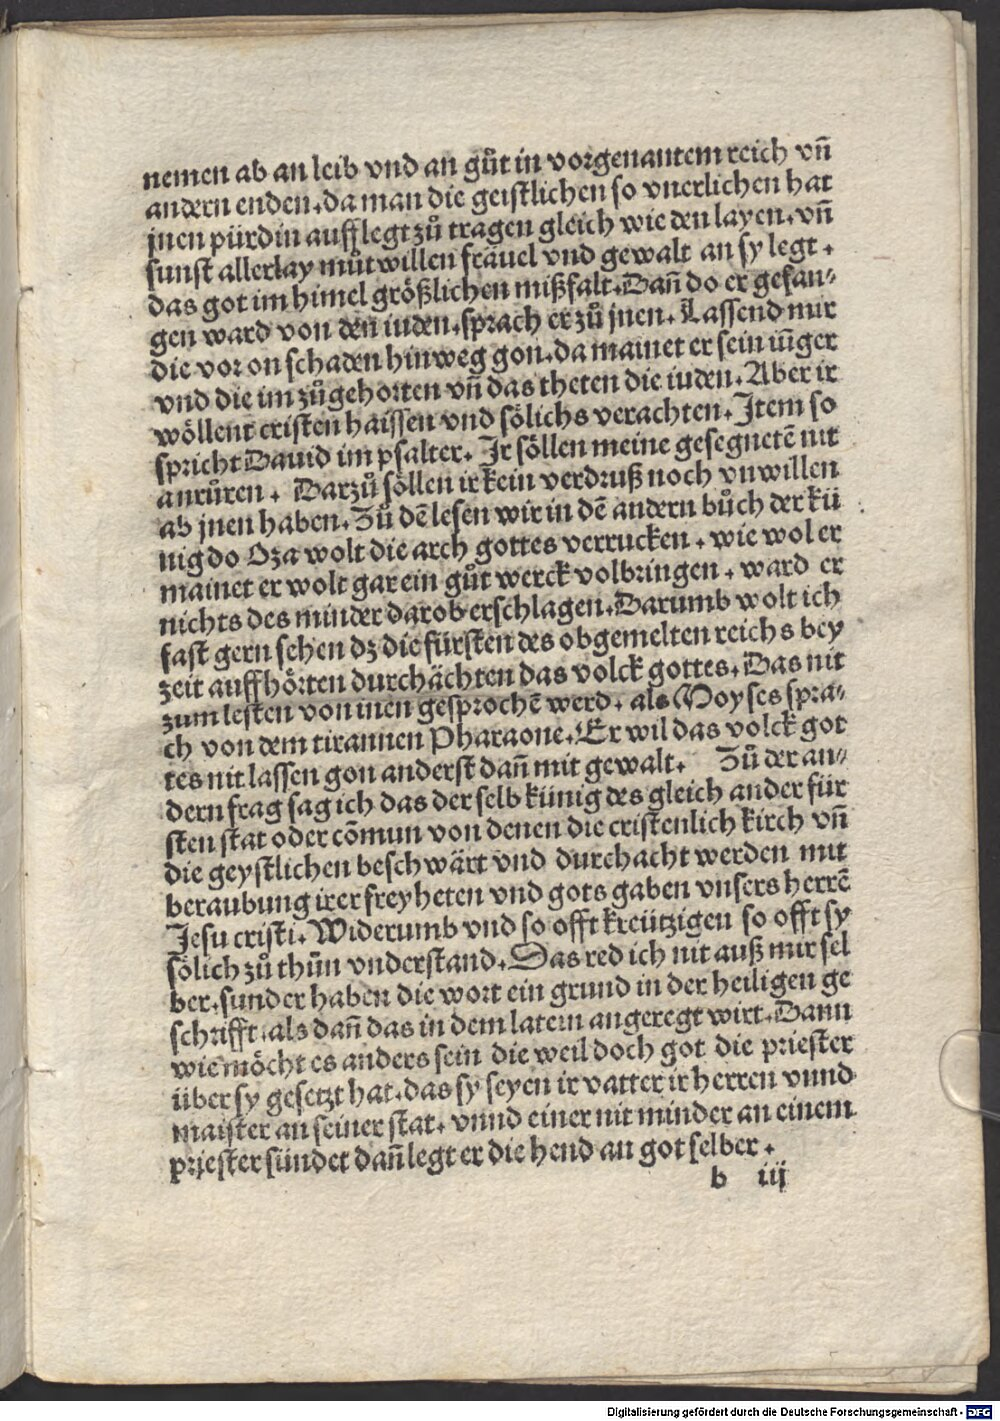 nemen ab an leib vnd an gůt in vorgenantem reich vn̄
andern enden. da man die geistlichen so vnerlichen hat
jnen pürdin aufflegt zů tragen gleich wie den layen. vn̄
sunst allerlay můtwillen fräuel vnd gewalt an sy legt.
das got im himel größlichen mißfalt. Dan̄ do er gefan⸗
gen ward von den iuden. sprach er zů jnen. Lassend nur
die vor on schaden hinweg gon. da mainet er sein iūger
vnd die im zůgehorten vn̄ das theten die iuden. Aber ir
wöllent cristen haissen vnd sölichs verachten. Item so
spricht Dauid im psalter. Ir söllen meine gesegnetē nit
anrůren. Darzů söllen ir kein verdruß noch vnwillen
ab jnen haben. Zů dē lesen wir in dē andern bůch der kü
nig do Oza wolt die arch gottes verrucken. wie wol er
mainet er wolt gar ein gůt werck volbringen. ward er
nichts des minder darob erschlagen. Darumb wolt ich
fast gern sehen dz die fürsten des obgemelten reichs bey
zeit auffhörten durchächten das volck gottes. Das nit
zum lesten von inen gesprochē werd. als Moyses spra⸗
ch von dem tirannen Pharaone. Er wil das volck got
tes nit lassen gon anderst dan̄ mit gewalt. Zů der an⸗
dern frag sag ich das der selb künig des gleich ander für
sten stat oder cōmun von denen die cristenlich kirch vn̄
die geystlichen beschwärt vnd durchacht werden mit
beraubung irer freyheten vnd gots gaben vnsers herrē
Jesu cristi. Widerumb vnd so offt kreützigen so offt sy
sölich zů thůn vnderstand. Das red ich nit auß mir sel
ber. sunder haben die wort ein grund in der heiligen ge
schrifft. als dan̄ das in dem latein angeregt wirt. Dann
wie möcht es anders sein die weil doch got die priester
über sy gesetzt hat. das sy seyen ir vatter ir herren vnnd
maister an seiner stat. vnnd einer nit minder an einem
priester sündet dan̄ legt er die hend an got selber.
b iij
Digitalisierung gefördert durch die Deutsche Forschungsgemeinschaft - DFG